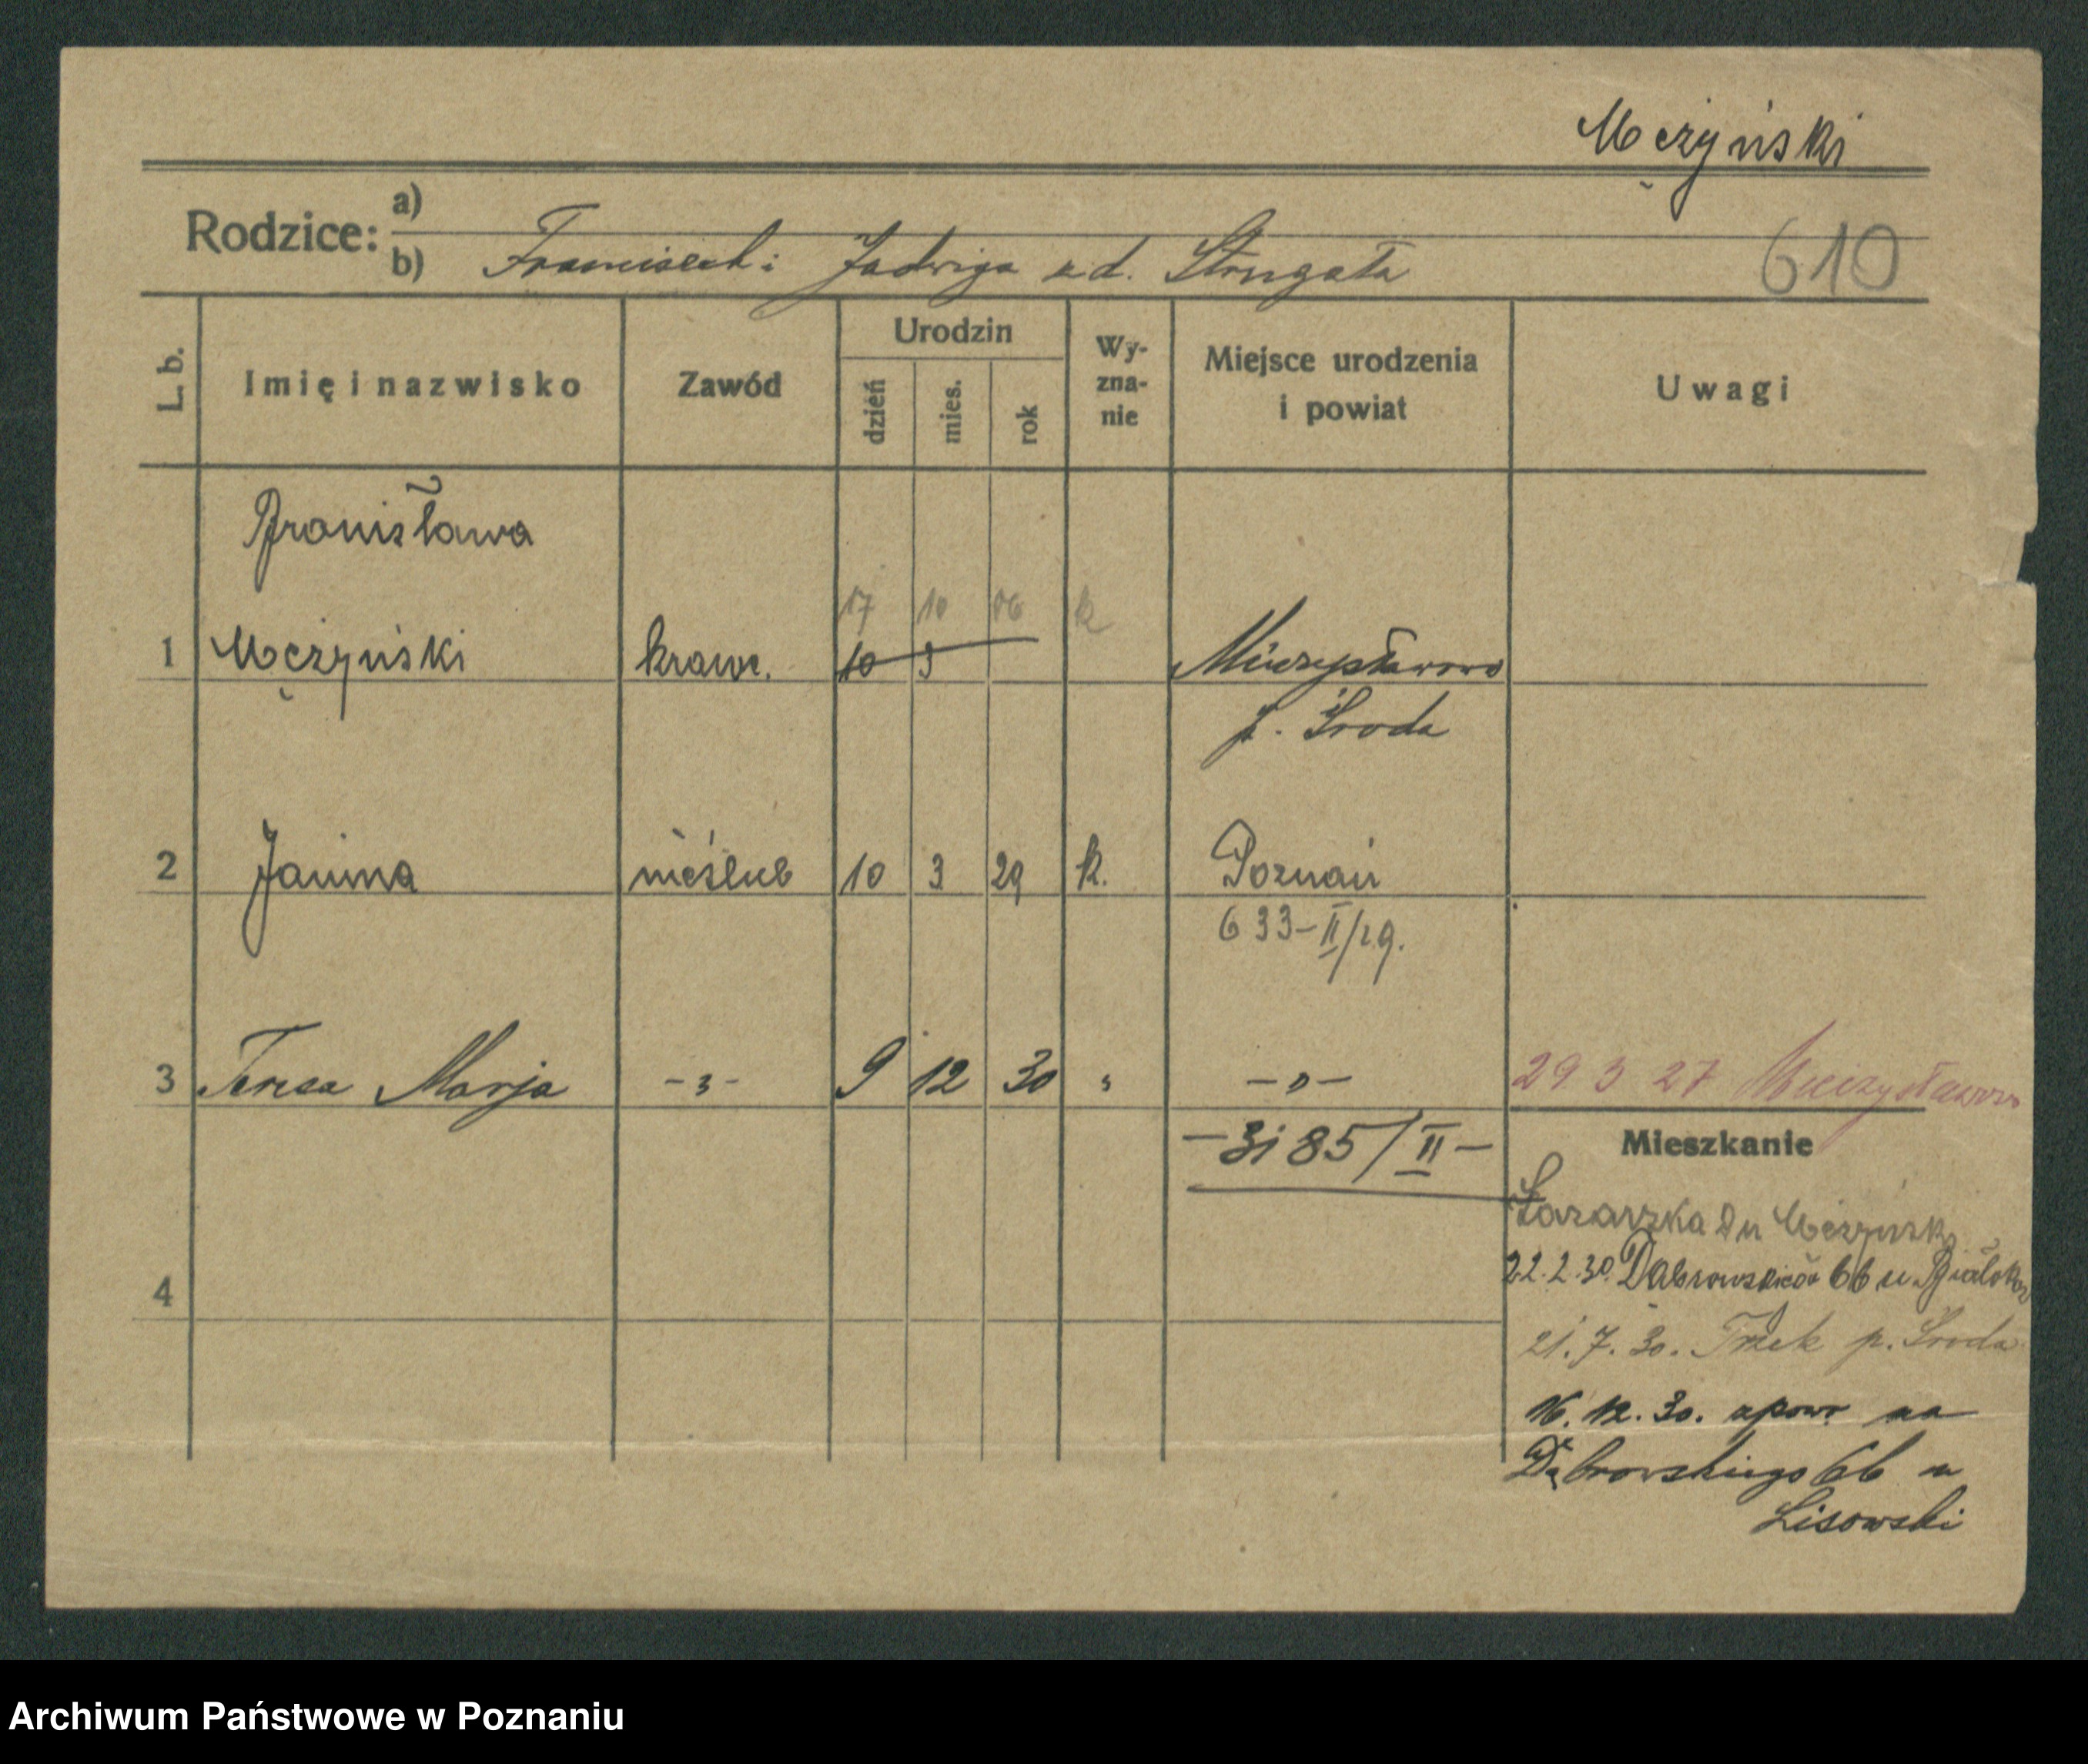 Mężyński
Rodzice: a)
b) Franciszek i Jadwiga z d. Strugała
610
L. b.
Imię i nazwisko
Zawód
Urodzin
dzień
mies.
rok
Wy-
zna-
nie
Miejsce urodzenia
i powiat
Uwagi
Bronisława
17 10 06 k
1 Mężyński krawc. 10 3 Mieczysławowo
p. Środa
2 Janina nieślub 10 3 29 k. Poznań
633-II/29.
3 Teresa Marja -„- 9 12 30 „ -„- 29 3 27 Mieczysławowo
-3185/II-
Mieszkanie
22.2.30. Dąbrowskiego 66 u
4
21.7.30. Trzek p. Środa
16.12.30. zpowr na
Dąbrowskiego 66 u
Lisowski
Archiwum Państwowe w Poznaniu